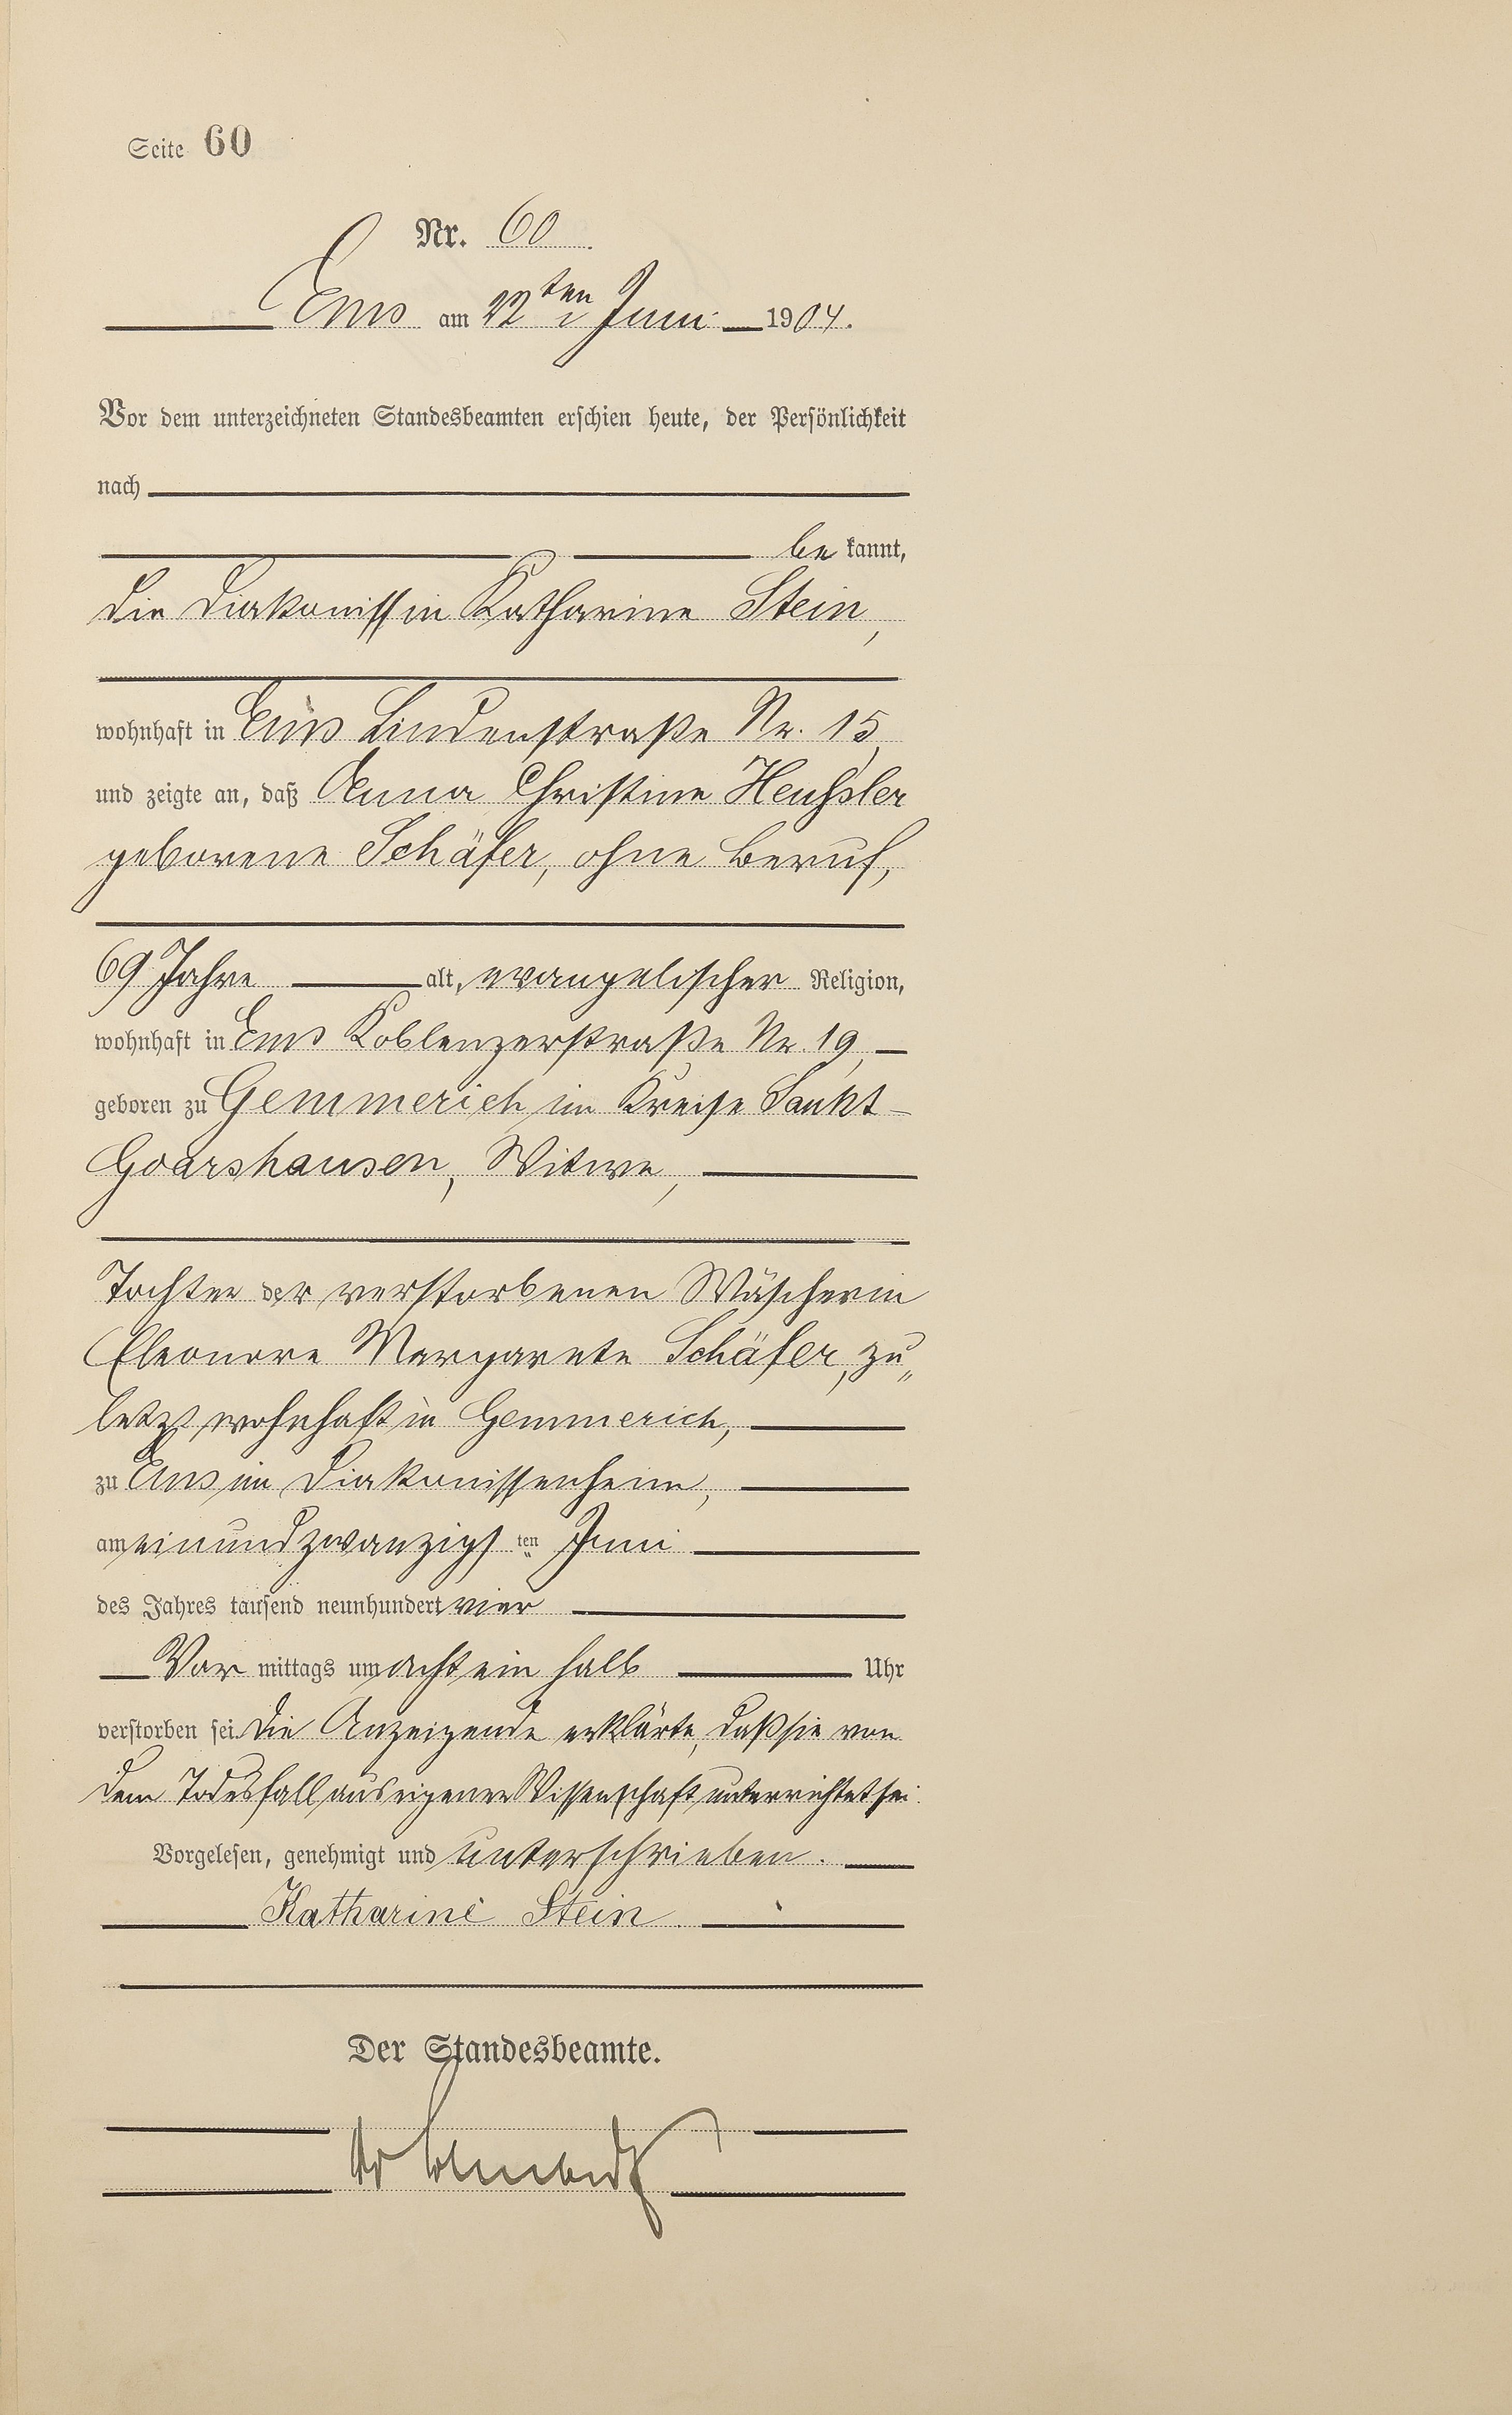 Seite 60
Nr. 60
Ems am 22ten Juni 1904.
Vor dem unterzeichneten Standesbeamten erschien heute, der Persönlichkeit
nach
be kannt,
die Diakonissin Katharine Stein,
wohnhaft in Ems Lindenstraße Nr. 15,
und zeigte an, daß Anna Christine Heußler
geborene Schäfer, ohne Beruf,
69 Jahre alt, evangelischer Religion,
wohnhaft in Ems Koblenzerstraße Nr. 19,
geboren zu Gemmerich im Kreise Sankt-
Goarshausen, Witwe,
Tochter der verstorbenen Wäscherin
Eleonore Margarete Schäfer, zu„
letzt wohnhaft in Gemmerich,
zu Ems im Diakonissenheim,
am einundzwanzigs ten Juni
des Jahres tausend neunhundert vier
Vor mittags um acht ein halb Uhr
verstorben sei. Die Anzeigende erklärte, daß sie von
dem Todesfall aus eigener Wissenschaft unterrichtet sei.
Vorgelesen, genehmigt und unterschrieben.
Katharine Stein
Der Standesbeamte.